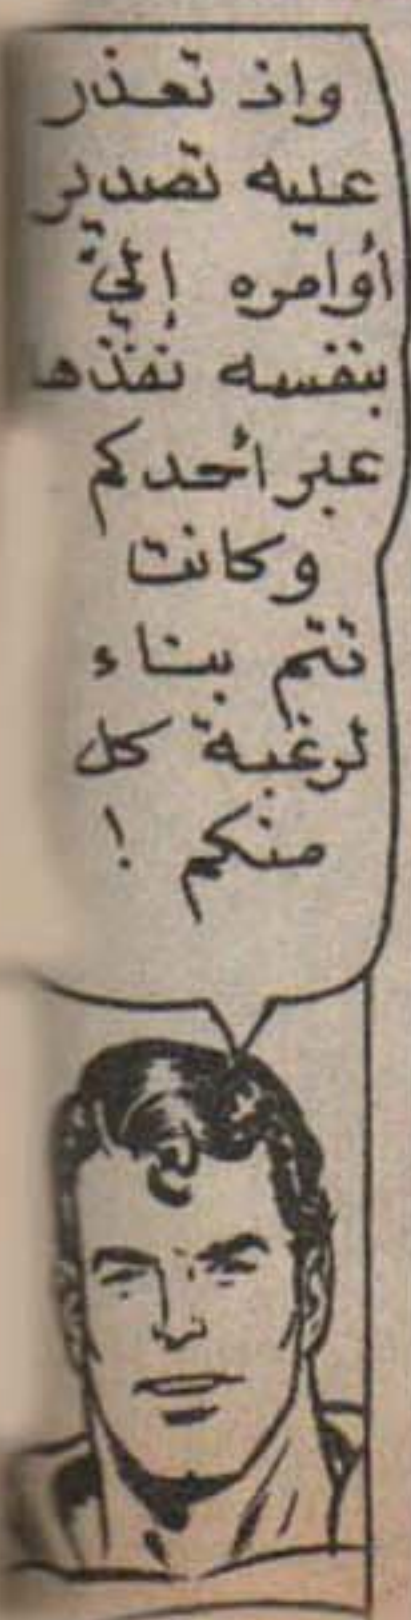 واذ تعذر
عليه تصدير
أوامره إليّ
بنفسه نفّذها
عبر أحدكم
وكانت
تتم بناء
لرغبة كل
منكم !